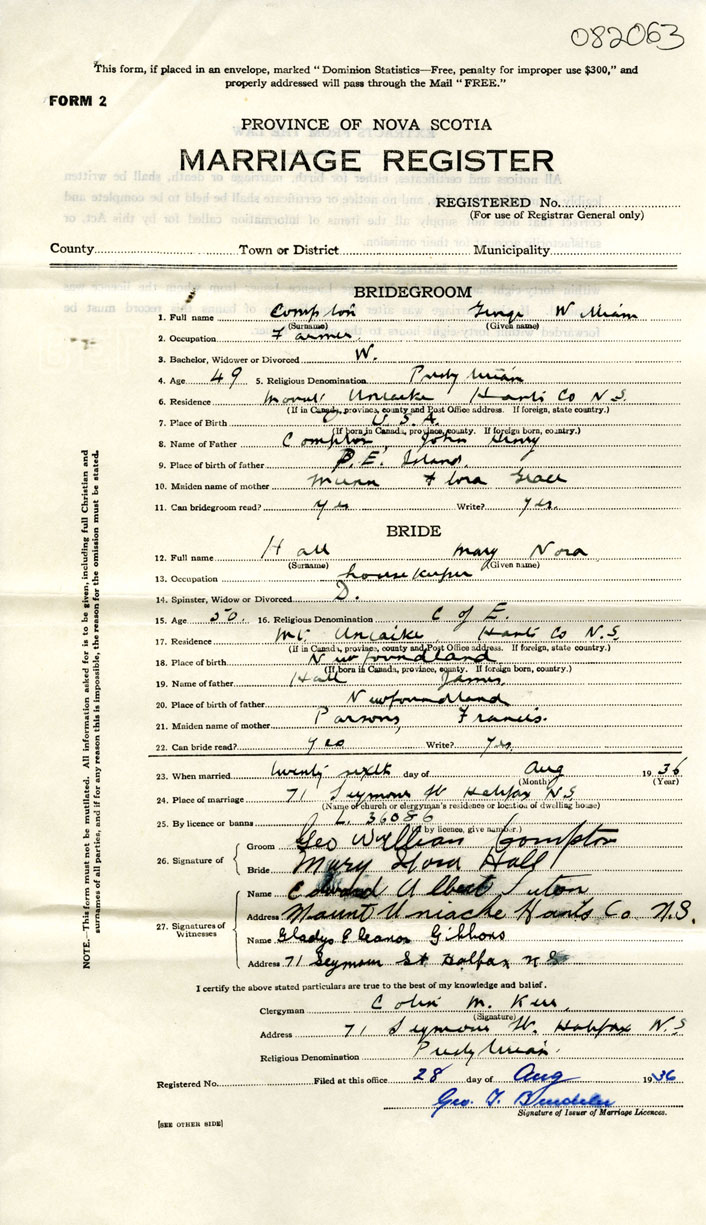 082063
This form, if placed in an envelope, marked "Dominion Statistics—Free, penalty for improper use $300," and
properly addressed will pass through the Mail "FREE."
FORM 2
PROVINCE OF NOVA SCOTIA
MARRIAGE REGISTER
REGISTERED No.
(For use of Registrar General only)
County Town or District Municipality
BRIDEGROOM
1. Full name Compton George William
(Surname) (Given name)
2. Occupation Farmer
3. Bachelor, Widower or Divorced W.
4. Age 49 5. Religious Denomination
6. Residence Mount Uniacke Hants Co N.S.
(If in Canada, province, county and Post Office address. If foreign, state country.)
7. Place of Birth U.S.A.
(If born in Canada, province, county. If foreign born, country.)
8. Name of Father Compton John Henry
9. Place of birth of father P.E. Island
10. Maiden name of mother Flora Grace
11. Can bridegroom read? yes Write? yes.
BRIDE
12. Full name Hall Mary Nora
(Surname) (Given name)
13. Occupation housekeeper
14. Spinster, Widow or Divorced D.
15. Age 50. 16. Religious Denomination C of E.
17. Residence Mt. Uniacke Hants Co N.S.
(If in Canada, province, county and Post Office address. If foreign, state country.)
18. Place of birth Newfoundland
(If born in Canada, province, county. If foreign born, country.)
19. Name of father Hall James
20. Place of birth of father Newfoundland
21. Maiden name of mother Parsons, Francis.
22. Can bride read? yes Write? yes.
23. When married twenty sixth day of Aug 1936
(Month) (Year)
24. Place of marriage 71 Seymour St Halifax N.S.
(Name of church or clergyman's residence or location of dwelling house)
25. By licence or banns L. 36086
(If by licence, give number.)
26. Signature of
Groom Geo William Compton
Bride Mary Nora Hall
27. Signatures of Witnesses
Name Edward Albert
Address Mount Uniacke Hants Co N.S.
Name Gladys Eleanor Gibbons
Address 71 Seymour St Halifax N.S.
I certify the above stated particulars are true to the best of my knowledge and belief.
Clergyman Colin M. Kerr
(Signature)
Address 71 Seymour St. Halifax N.S
Religious Denomination
Registered No. Filed at this office 28 day of Aug 1936
Geo. T.
Signature of Issuer of Marriage Licences.
[SEE OTHER SIDE]
NOTE.—This form must not be mutilated. All information asked for is to be given, including full Christian and
surnames of all parties, and if for any reason this is impossible, the reason for the omission must be stated.